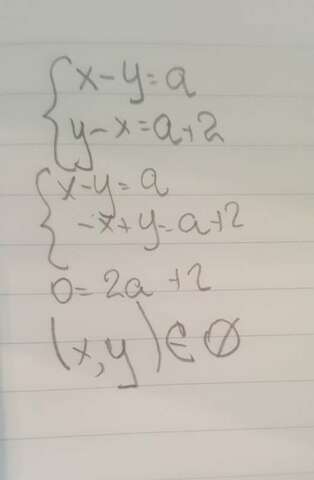 x-y=a
y-x=a+2
x-y=a
-x+y=a+2
0=2a+2
(x,y)∈∅